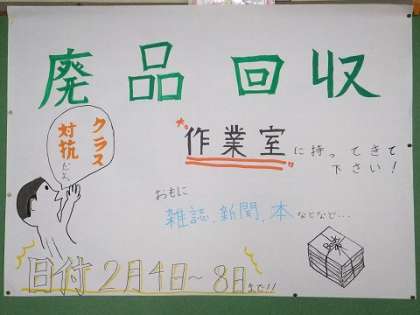 廃品回収
クラス
対抗だよ
作業室に持ってきて
下さい！
おもに
雑誌、新聞、本などなど…
日付 2月4日〜8日まで!!